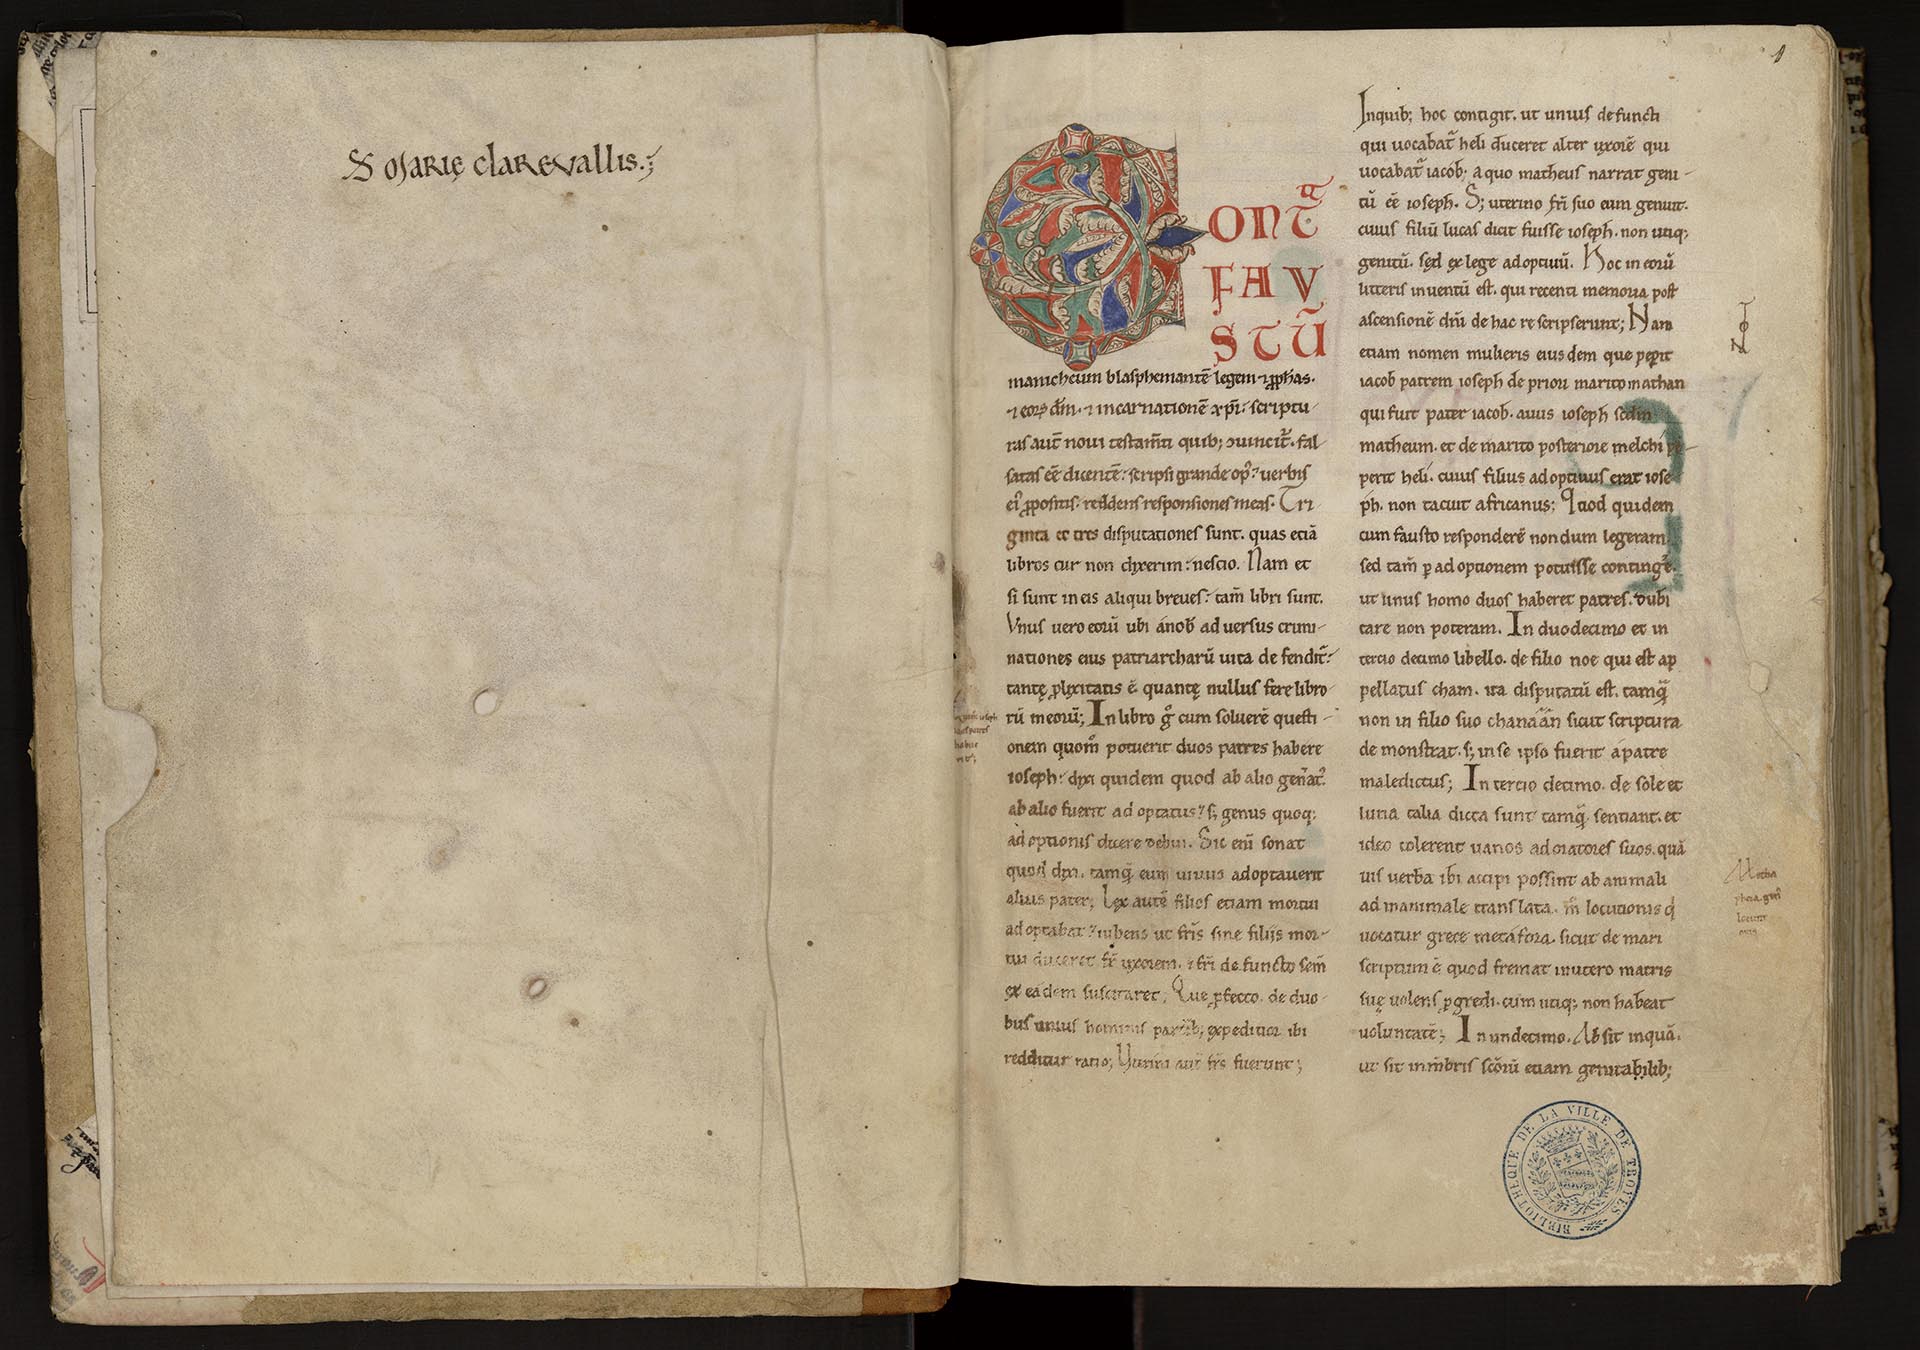 S osarię clarevallis.;
CONTᷓ
FAV
STŪ
manicheum blasphemantē legem ⁊ ꝓphas.
⁊ eoꝝ dm̄. ⁊ incarnationē xp̄i: scriptu-
ras aut̄ noui testam̄ti quib; ↄuincit᷑. fal-
satas eē dicentē: scripsi grande opꝰ: uerbis
eiꝰ ꝓpositis: reddens responsiones meas. Tri-
ginta et tres disputationes sunt. quas etiā
libros cur non dixerim: nescio. Nam et
si sunt in eis aliqui breues: tam̄ libri sunt.
Vnus uero eorū ubi a nob̄ aduersus crimi-
nationes eius patriarcharū uita defendit᷑:
tantę ꝓlixitatis ē. quantę nullus fere libro-
rū meorū; In libro gͦ cum soluerē questi-
onem quom̊ potuerit duos patres habere
ioseph: dixi quidem quod ab alio gen̄atꝰ.
ab alio fuerit adoptatus: s; genus quoq;
adoptionis dicere debui. Sic enī sonat
quod dixi. tamq̄ eum uiuus adoptauerit
alius pater; Lex autē filios etiam mortui
adoptabat: iubens ut fr̄is sine filiis mor-
tui duceret fr̄ uxorem. ⁊ fr̄i defuncto sem̄
ex eadem suscitaret; Que ꝓfecto. de duo-
bus unius hominis patrib; expeditior ibi
redditur ratio; Uterini aut̄ fr̄s fuerunt;
1
Inquib; hoc contigit. ut unius defuncti
qui uocabat᷑ heli duceret alter uxorē qui
uocabat᷑ iacob; a quo matheus narrat geni-
tū eē ioseph. S; uterino fr̄i suo eum genuit.
cuius filiū lucas dicit fuisse ioseph. non utiq;
genitū. sed ex lege adoptiuū. Hoc in eorū
litteris inuentū est. qui recenti memoria post
ascensionē dn̄i de hac re scripserunt; Nam
etiam nomen mulieris eiusdem que peperit
iacob patrem ioseph de priori marito mathan
qui fuit pater iacob. auus ioseph scdm̄
matheum. et de marito posteriore melchi pe-
perit heli. cuius filius adoptiuus erat iose-
ph. non tacuit africanus; Quod quidem
cum fausto responderē nondum legeram.
sed tam̄ ꝑ adoptionem potuisse continge᷑.
ut unus homo duos haberet patres. dubi
tare non poteram. In duodecimo et in
tercio decimo libello. de filio noe qui est ap
pellatus cham. ita disputatū est. tamq̄
non in filio suo chanaan sicut scriptura
demonstrat. s; in se ipso fuerit a patre
maledictus; In tercio decimo. de sole et
luna talia dicta sunt tamq̄ sentiant. et
ideo tolerent uanos adoratores suos. quā
uis uerba ibi accipi possint ab animali
ad inanimale translata. m̊ locutionis q̄
uocatur grece metafora. sicut de mari
scriptum ē quod fremat in utero matris
suę uolens ꝓgredi. cum utiq; non habeat
uoluntatē; In undecimo. Absit inquā.
ut sit in mēbris scōrū etiam genitabilib;
Metha
phora. gen̄
locuti
onis
BIBLIOTHEQUE DE LA VILLE DE TROYES